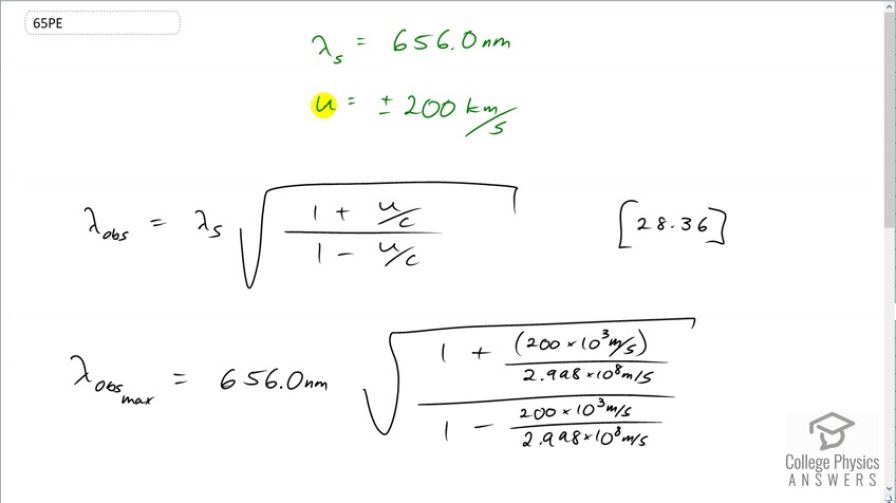 65PE
λs = 656.0 nm
u = ± 200 km/s
λobs = λs √((1 + u/c)/(1 - u/c)) [28.36]
λobs max = 656.0 nm √((1 + (200 × 10³ m/s)/(2.998 × 10⁸ m/s))/(1 - (200 × 10³ m/s)/(2.998 × 10⁸ m/s)))
College Physics
ANSWERS